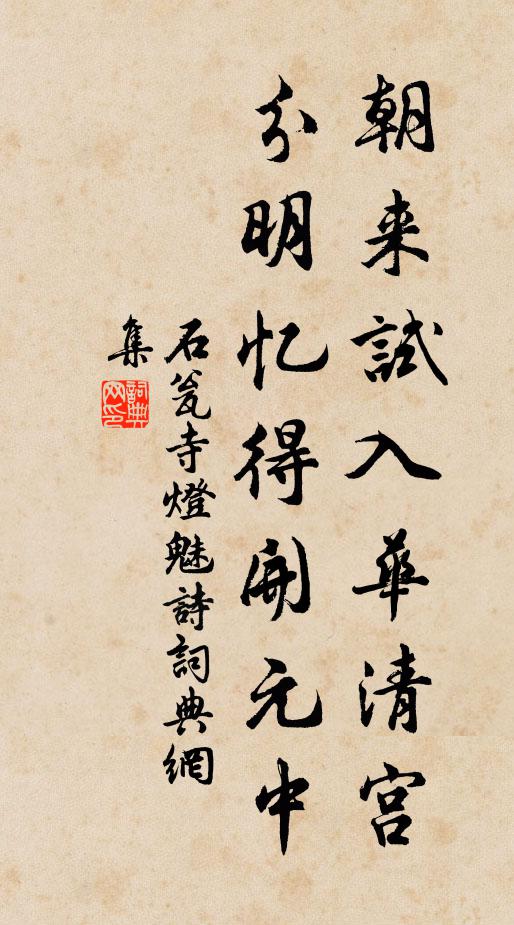 朝来試入華清宫
分明忆得開元中
石瓮寺燈魅詩詞典網
集
詞典網印